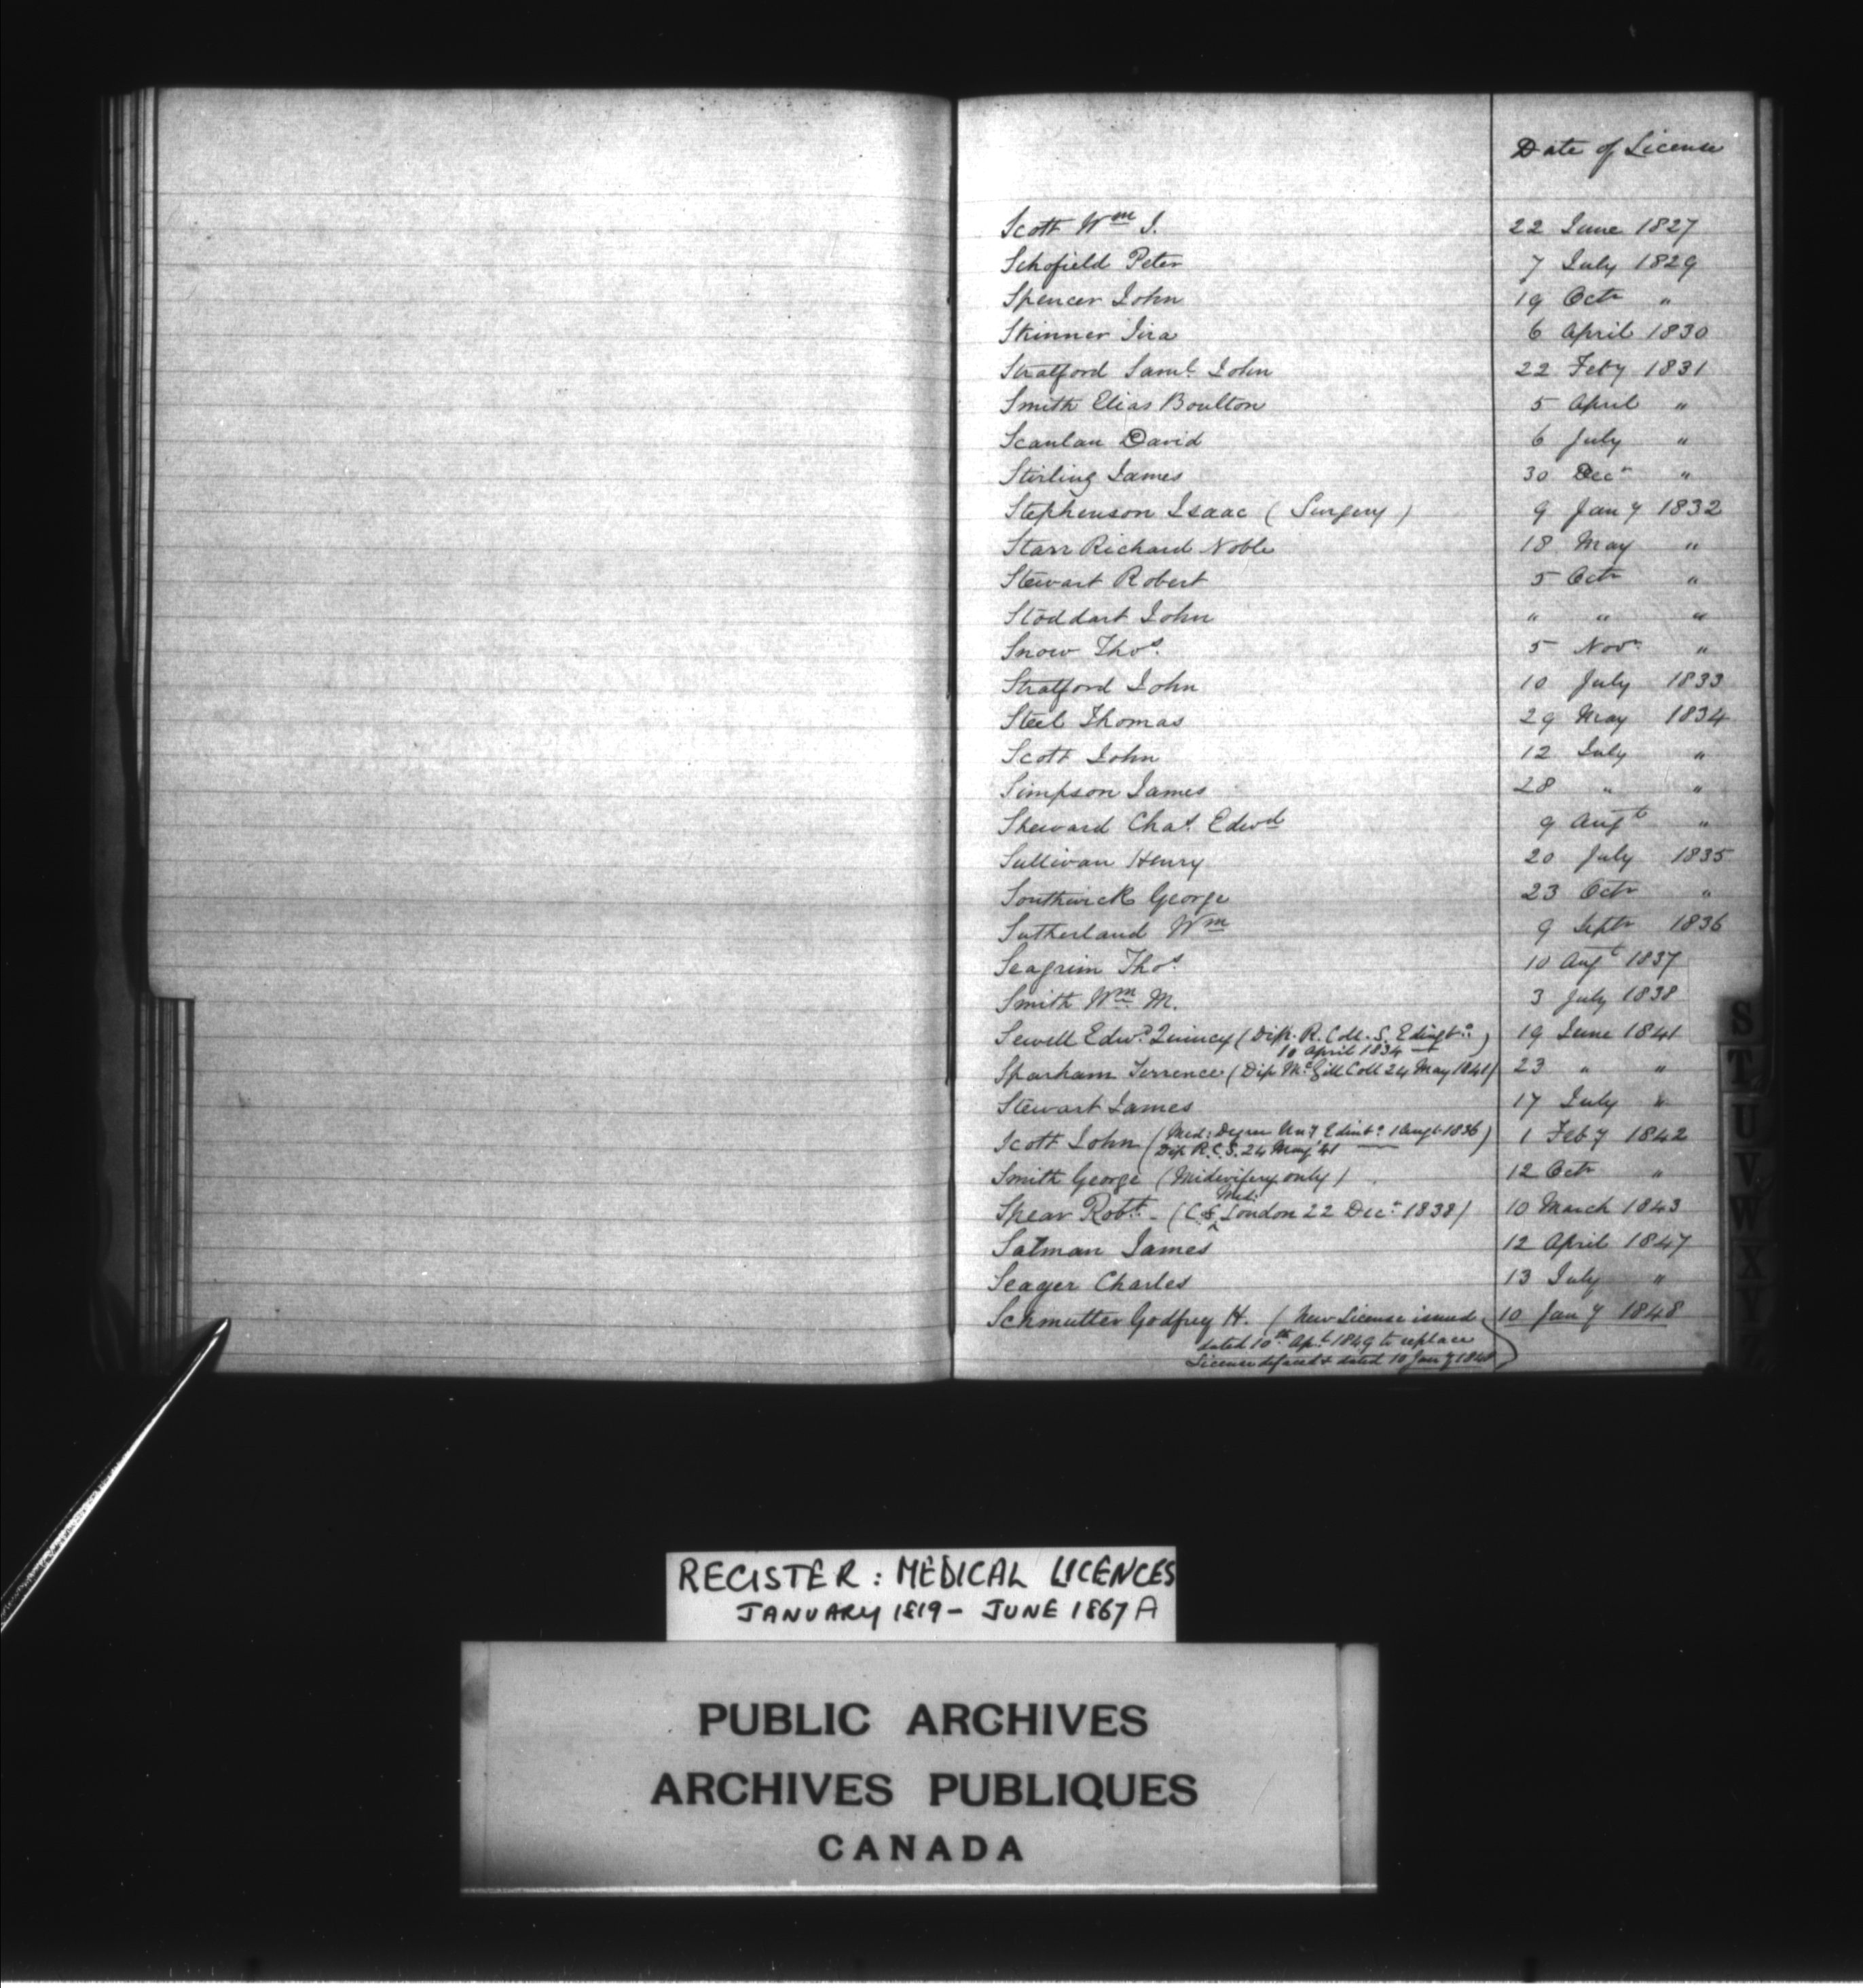 Date of License
Scott Wm J. 22 June 1827
Schofield Peter 7 July 1829
Spencer John 19 Octr "
Skinner Ira 6 April 1830
Stratford Saml. John 22 Feby 1831
Smith Elias Boulton 5 April "
Scanlan David 6 July "
Stirling James 30 Decr "
Stephenson Isaac (Surgery) 9 Jany 1832
Starr Richard Noble 18 May "
Stewart Robert 5 Octr "
Stoddart John " " "
Snow Thos. 5 Novr "
Stratford John 10 July 1833
Steel Thomas 29 May 1834
Scott John 12 July "
Simpson James 28 " "
Steward Chas. Edwd 9 Augt "
Sullivan Henry 20 July 1835
Southwick George 23 Octr "
Sutherland Wm 9 Septr 1836
Seagrim Thos. 10 Augt 1837
Smith Wm. M. 3 July 1838
Sewell Edwd. Quincy (Dip. R. Coll. S. Edingbo. 19 June 1841
10 April 1834 — )
Sparham Terrence (Dip McGill Coll 24 May 1841) 23 " "
Stewart James 17 July "
Scott John (Med: Degree Uny Edinbo. 1 Augt 1836) 1 Feby 1842
Dip. R.C.S. 24 May '41 —
Smith George (Midwifery only) 12 Octr "
Med:
Spear Robt. - (C. S. London 22 Decr. 1838) 10 March 1843
Salman James 12 April 1847
Seager Charles 13 July "
Schmutter Godfrey H. (New License issued 10 Jany 1848
dated 10th. Apl. 1849 to replace
License defaced & dated 10 Jany 1848)
S
T
U
V
W
X
Y
Z
REGISTER: MEDICAL LICENCES
JANUARY 1819 - JUNE 1867 A
PUBLIC ARCHIVES
ARCHIVES PUBLIQUES
CANADA